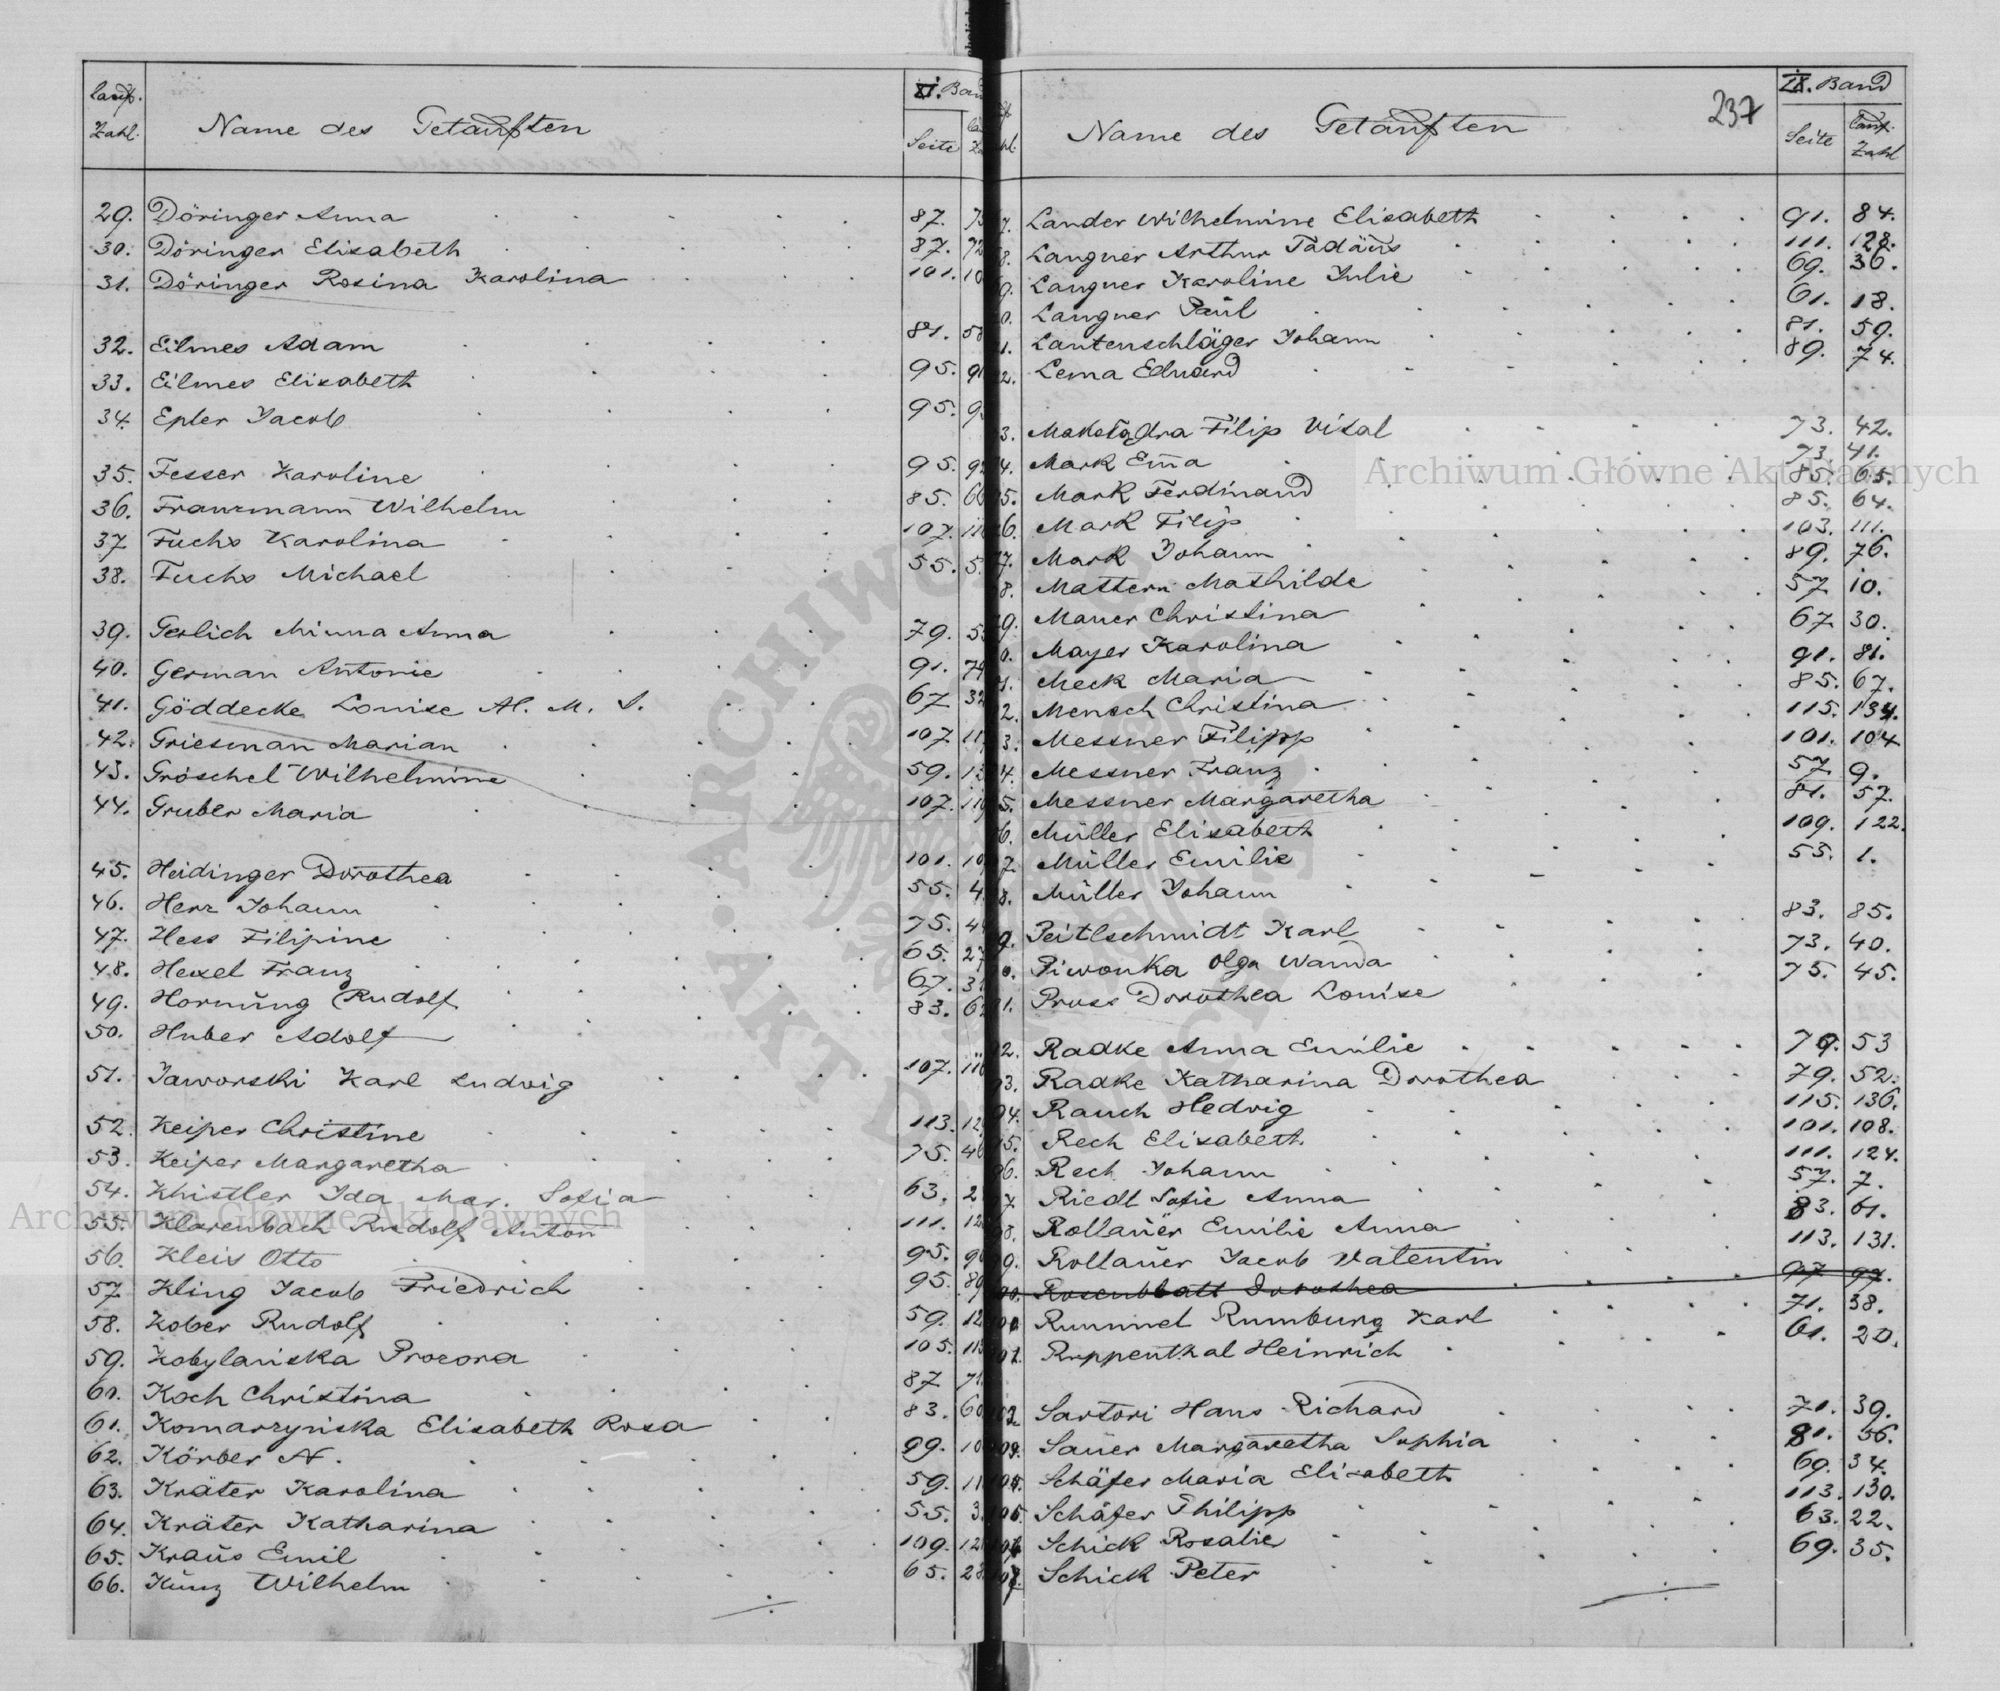 Lauf. Zahl.
Name des Getauften
XI. Band
Seite
29. Döringer Anna 87.
30. Döringer Elisabeth 87. 72
31. Döringer Rosina Karolina 101.
32. Eilmes Adam 81.
33. Eilmes Elisabeth 95.
34. Epler Jacob 95.
35. Fesser Karoline 95.
36. Franzmann Wilhelm 85.
37 Fuchs Karolina 107.
38. Fuchs Michael 55.
39. Gerlich Minna Anna 79.
40. German Antonie 91.
41. Göddecke Louise Al. M. S. 67 32
42. Griesman Marian 107
43. Gröschel Wilhelmine 59.
44. Gruber Maria 107.
45. Heidinger Dorothea 101.
46. Herz Johann 55. 4
47. Hess Filipine 75.
48. Hexel Franz 65.
49. Hornung Rudolf 67.
50. Huber Adolf 83.
51. Jaworski Karl Ludwig 107.
52. Keiper Christine 113.
53. Keiper Margaretha 75.
54. Khistler Ida Mar. Sofia 63.
55. Klarenbach Rudolf Anton 111.
56. Kleis Otto 95.
57 Kling Jacob Friedrich 95.
58. Kober Rudolf 59.
59. Kobylańska Prozora 105.
60. Koch Christina 87
61. Komarzyńska Elisabeth Rosa 83.
62. Körber N. 99.
63. Kräter Karolina 59.
64. Kräter Katharina 55. 3
65. Kraus Emil 109.
66. Kunz Wilhelm 65.
Name des Getauften
237
IX. Band
Seite
Lauf. Zahl
7. Lander Wilhelmine Elisabeth 91. 84.
8. Langner Arthur Tadäus 111. 128.
9. Langner Karoline Julie 69. 36.
0. Langner Paul 61. 18.
1. Lautenschläger Johann 81. 59.
2. Lema Eduard 89. 74.
3. Filip Vital 73. 42.
4. Mark Em̄a 73. 41.
5. Mark Ferdinand 85. 65.
6. Mark Filip 85. 64.
7. Mark Johann 103. 111.
8. Mattern Mathilde 89. 76.
9. Mauer Christina 57 10.
0. Mayer Karolina 67 30.
1. Meck Maria 91. 81.
2. Mensch Christina 85. 67.
3. Messner Filipp 115. 134.
4. Messner Franz 101. 104
5. Messner Margaretha 57 9.
6. Müller Elisabeth 81. 57.
7. Müller Emilie 109. 122.
8. Müller Johann 55. 1.
9. Peitlschmidt Karl 83. 85.
0. Piwonka Olga Wanda 73. 40.
1. Pruss Dorothea Louise 75. 45.
2. Radke Anna Emilie 79. 53
3. Radke Katharina Dorothea 79. 52.
4. Rauch Hedwig 115. 136.
5. Rech Elisabeth 101. 108.
6. Rech Johann 111. 124.
7. Riedl Sofie Anna 57. 7.
8. Rollauer Emilie Anna 83. 61.
9. Rollauer Jacob Valentin 113. 131.
Rosenblatt Dorothea 97 97.
Rummel Rumburg Karl 71. 38.
Ruppenthal Heinrich 61. 20.
Sartori Hans Richard 71. 39.
Sauer Margaretha Sophia 81. 56.
Schäfer Maria Elisabeth 69. 34.
Schäfer Philipp 113. 130.
Schick Rosalie 63. 22.
Schick Peter 69. 35.
Archiwum Główne Akt Dawnych
Archiwum Główne Akt Dawnych